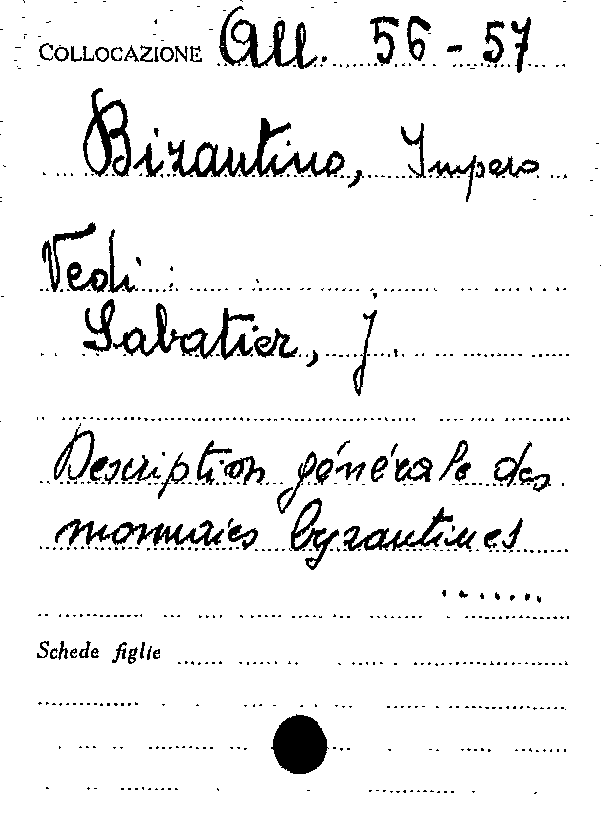 COLLOCAZIONE All. 56-57
Bizantino, Impero
Vedi:
Sabatier, J.
Description générale des
monnaies byzantines
.......
Schede figlie